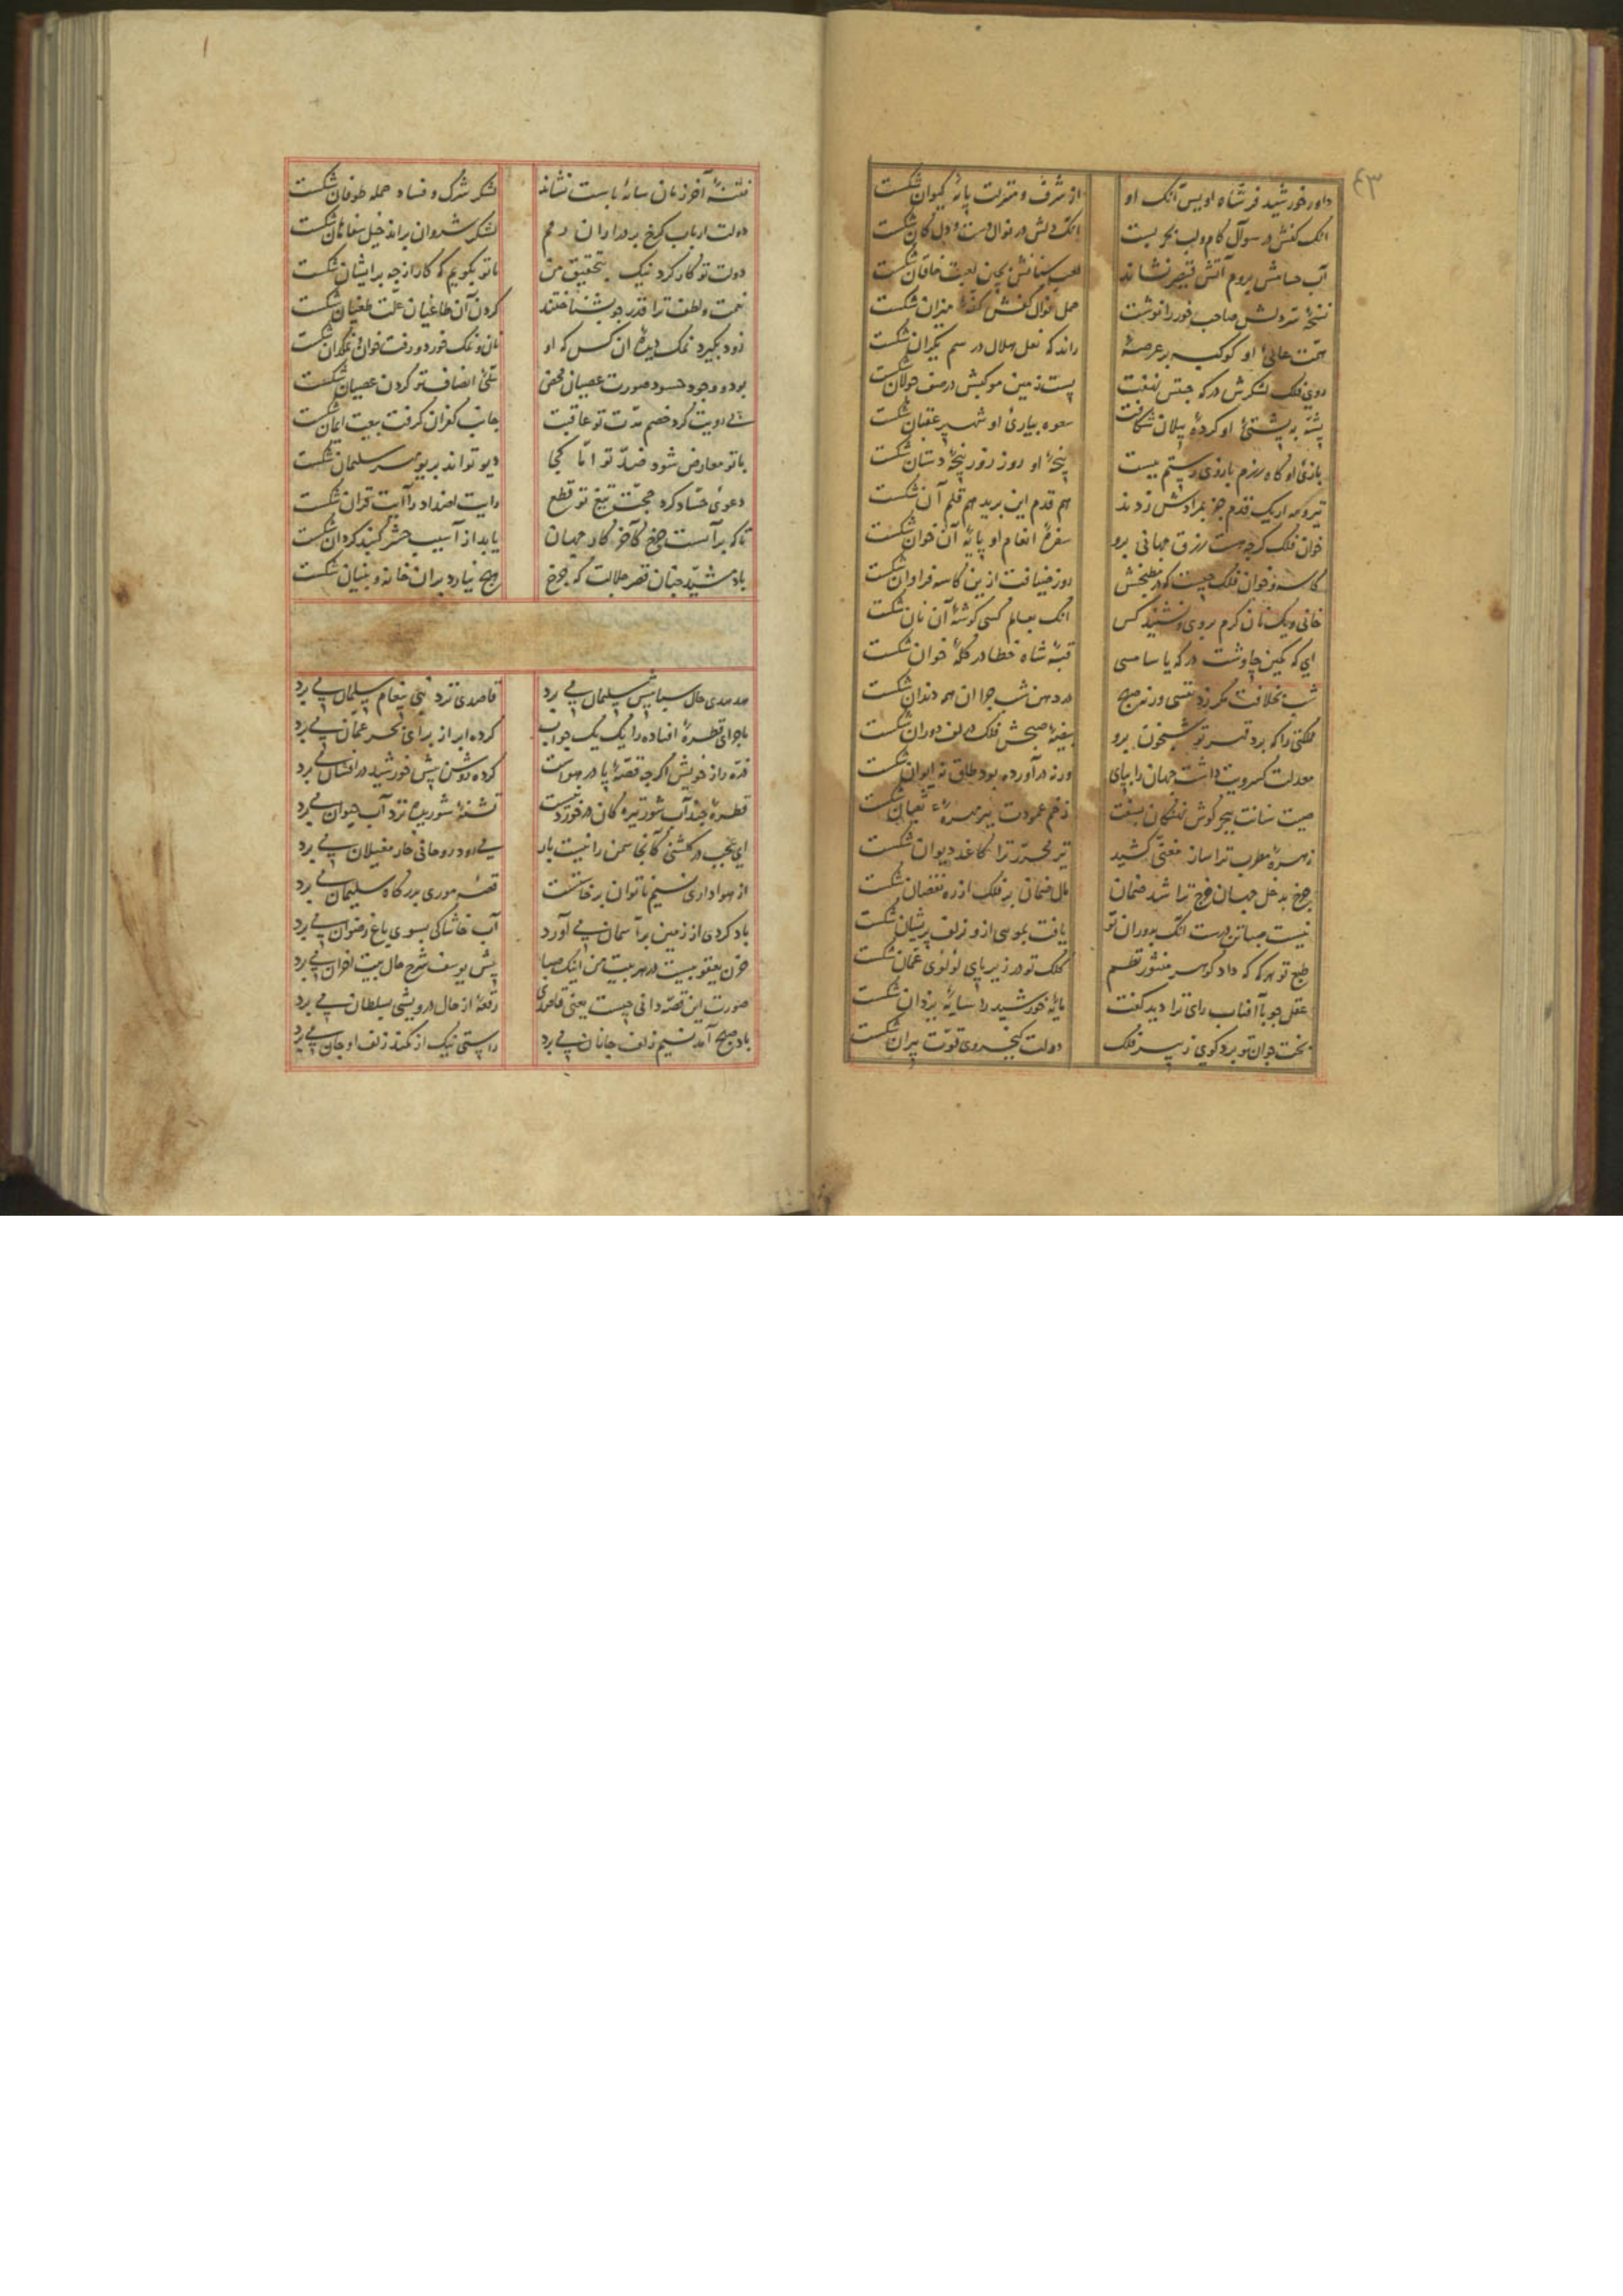 ٤٣
داور خورشید فر شاه اویس آنک او از شرف و منزلت پایهٔ کیوان شکست
انک کفش در سوال کام و لب بحر بست انک دلش در نوال دست و دل کان شکست
آب حسامش بروم آتش قیصر نشاند لعب سنانش بچین لعبت خاقان شکست
نسخهٔ تیر دلش صاحب خور را نوشت حمل نوال کفش کفهٔ میزان شکست
همّت عالیٔ او کوکبه بر عرصهٔ راند که نعل هلال در سم یکران شکست
روی فلک لشکرش در که جنبش نهفت پشت زمین موکبش در صف جولان شکست
پشّه به پشتیٔ او کردهٔ پیلان شکافت صعوه بیاریٔ او شهپر عقبان شکست
بازیٔ او گاه رزم بازوی رستم ببست پنجهٔ او روز زور پنجهٔ دستان شکست
تیر و مه ار یک قدم جز بمرادش زدند هم قدم این برید هم قلم آن شکست
خوان فلک گرچه هست رزق جهانی برو سفرهٔ انعام او پایهٔ آن خوان شکست
کاسه و خوان فلک چیست که در مطبخش روز ضیافت ازین کاسه فراوان شکست
خانی و یک نان گرم بروی و نشنید کس انک بعالم کسی گوشهٔ آن نان شکست
ای که کمین چاوشت در که یاسامشی قبهٔ شاه خطا در کلهٔ خوان شکست
شب بخلافت مگر زد نفسی ورنه صبح در دهن شب چرا آن همه دندان شکست
ملکتی را که برد قهر تو شبیخون برو بیضهٔ صبحش فلک در لف دوران شکست
معدلت کسرویت داشت جهان را بپای ورنه در آورده بود طاق نه ایوان شکست
صیت سنانت ببحر گوش نهنگان بسفت زخم عمودت ببر مهرهٔ ثعبان شکست
زهرهٔ مطرب ترا ساز مغنّی کشید تیر محرّر ترا کاغد دیوان شکست
چرخ بدخل جهان خرج ترا شد ضمان مال ضمان بر فلک از ره نقصان شکست
نیست میان تن درست انک بدوران تو یافت بمویی ازو زلف پریشان شکست
طبع تو هرگه که داد گوهر منثور نظم کلک تو در زیر پای لؤلؤی عمّان شکست
عقل چو با آفتاب رای ترا دید گفت پایهٔ خورشید را سایهٔ یزدان شکست
بخت جوان تو برد گوی ز پیر فلک دولت کیخسروی قوّت پیران شکست
فتنهٔ آخر زمان سایهٔ باست نشاند لشکر شرک و فساد حمله طوفان شکست
دولت ارباب کرخ بر در اوان رمم لشکر شروان براند خیل سغاهان شکست
دولت تو کار کرد نیک بتحقیق من باتو بگویم که کار از چه بر ایشان شکست
نعمت و لطف ترا قدر چو نشناختند گردن آن طاغیان علّت طغیان شکست
زود بگیرد نمک دیدهٔ آن کس که او نان و نمک خورد و رفت خوان و نمکدان شکست
بود وجود حسود صورت عصیان محض تیغ انصاف تو گردن عصیان شکست
جانب کفران گرفت بیعت ایمان شکست
باتو معارض شود ضدّ تو امّا کجا دیو تواند بریو مهر سلیمان شکست
دعویٔ حسّاد کرد حجّت تیغ تو قطع رایت اضداد را آیت قرآن شکست
تاکه بر آنست چرخ کآخر کار جهان یابد از آسیب حشر گنبد گردان شکست
باد مشیّد چنان قصر جلالت که چرخ هیچ نیارد بر آن خانه و بنیان شکست
هدهدی حال سبا پیش سلیمان می برد قاصدی نزد نبی پیغام سلمان می برد
ماجرای قطرهٔ افتاده را یک یک جواب کرده ابر از برای بحر عمّان می برد
ذرّه راز خویش اگرچه قصّهٔ پا در هواست کرده روشن پیش خورشید درافشان می برد
قطرهٔ چند آب شور تیره کان درخورد نیست تشنهٔ شوریده نزد آب حیوان می برد
ای عجب در گلشنی کانجا سمن را نیست بار می رود روحانی خار مغیلان می برد
از هواداری نسیم ناتوان برخاستست قصّه موری بدرگاه سلیمان می برد
باد گردی از زمین بر آسمان می آورد آب خاشاکی بسوی باغ رضوان می برد
حزن یعقوبیست در هر بیت من اینک صبا پیش یوسف شرح حال بیت احزان می برد
صورت این قصّه دانی چیست یعنی قاصدی رقعهٔ از حال درویشی بسلطان می برد
باد صبح آمد نسیم زلف جانان می برد راستی نیک از کمند زلف او جان می برد